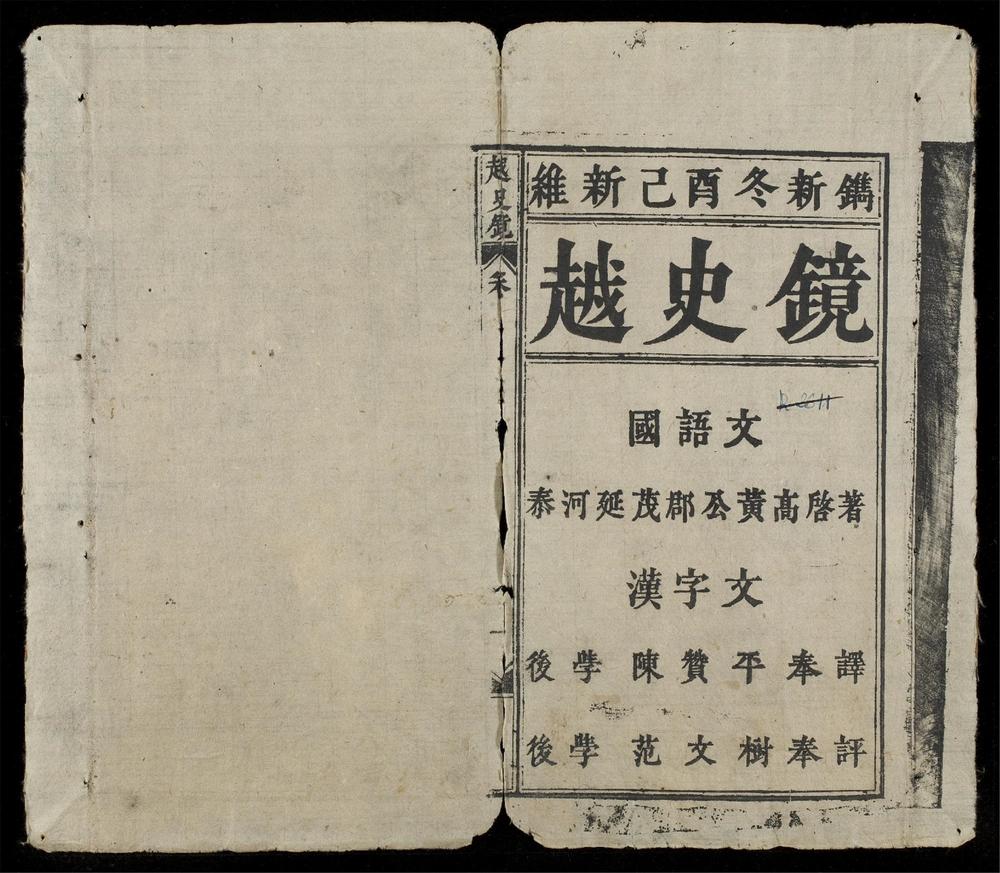 維新己酉冬新鐫
越史鏡
國語文
泰河延茂郡公黃高啓著
漢字文
後學陳贊平奉譯
後學范文樹奉評
越史鏡